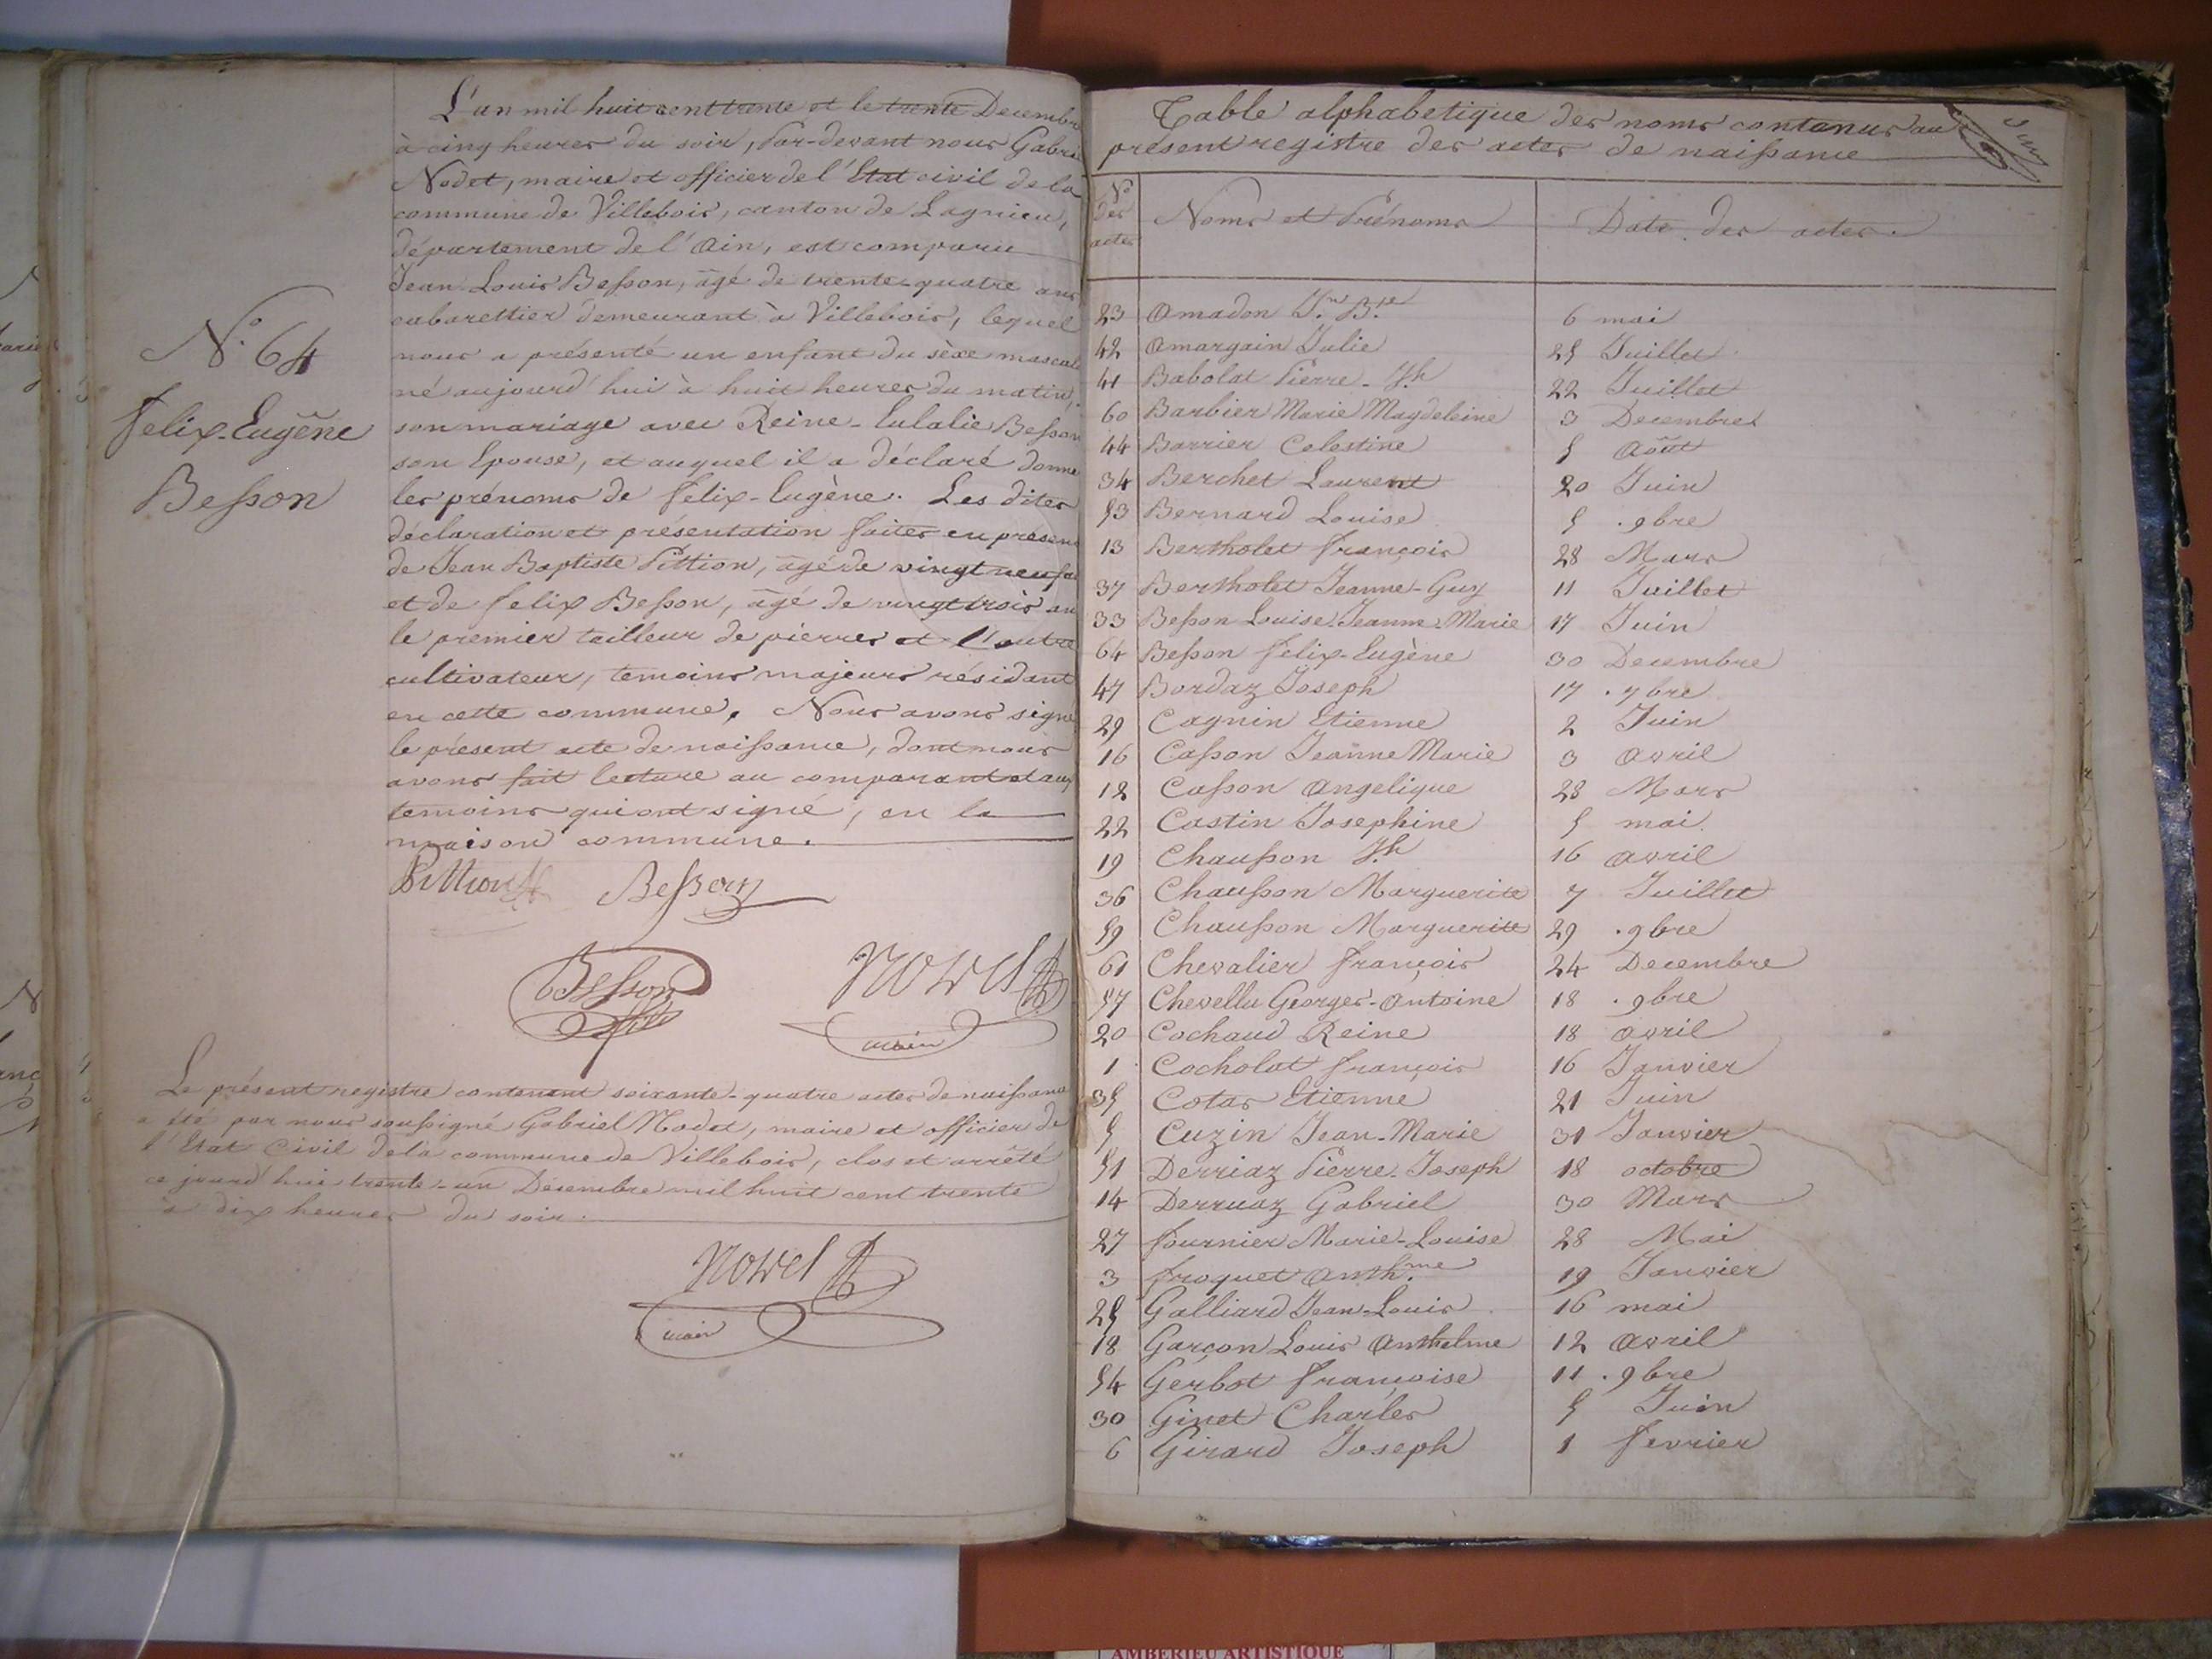 L'an mil huit cent trente et le trente Decembre
à cinq heures du soir, Par-devant nous Gabriel
Nodet, maire et officier de l'Etat civil de la
commune de Villebois, canton de Lagnieu,
département de l'Ain, est comparu
Jean Louis Besson, âgé de trente-quatre ans
cabarettier demeurant à Villebois, lequel
nous a présenté un enfant du sèxe mascul
né aujourd'hui à huit heures du matin,
son mariage avec Reine-Eulalie Besson
son Epouse, et auquel il a déclaré donne
les prénoms de felix-Eugène. Les dites
déclaration et présentation faites en présenc
de Jean Baptiste Pittion, âgé de vingt neuf
et de felix Besson, âgé de vingt trois an
le premier tailleur de pierres et l'autre
cultivateur, temoins majeurs résidant
en cette commune. Nous avons signé
le présent acte de naissance, dont nous
avons fait lecture au comparant et aux
temoins qui ont signé, en la
maison commune.
N.° 64
felix-Eugène
Besson
Pittion Besson
Besson Nodet
maire
Le présent registre contenant soixante-quatre actes de naissance
a été par nous soussigné Gabriel Nodet, maire et officier de
l'Etat Civil de la commune de Villebois, clos et arrêté
ce jourd'hui trente-un Decembre mil huit cent trente
à dix heures du soir.
Nodet
maire
Table alphabetique des noms contenus au
present registre des actes de naissance
N.° des actes Noms et Prénoms Date des actes.
23 Amadon J.n B.te 6 mai
42 Amargain Julie 25 Juillet
41 Babolat Pierre-J.h 22 Juillet
60 Barbier Marie Magdeleine 3 Decembre
44 Barrier Celestine 5 Août
34 Berchet Laurent 20 Juin
53 Bernard Louise 5 . 9bre
13 Bertholet françois 28 Mars
37 Bertholet Jeanne-Guy 11 Juillet
33 Besson Louise-Jeanne-Marie 17 Juin
64 Besson felix-Eugène 30 Decembre
47 Bordaz Joseph 17 . 7bre
29 Cagnin Etienne 2 Juin
16 Casson Jeanne Marie 3 avril
12 Casson Angelique 28 Mars
22 Castin Josephine 5 mai.
19 Chausson J.h 16 avril
36 Chausson Marguerite 7 Juillet
59 Chausson Marguerite 29 . 9bre
61 Chevalier françois 24 Decembre
57 Chevellu Georges-Antoine 18 . 9bre
20 Cochaud Reine 18 avril
1 Cocholat françois 16 Janvier
35 Cotas Etienne 21 Juin
5 Cuzin Jean-Marie 31 Janvier
51 Derriaz Pierre-Joseph 18 octobre
14 Derruaz Gabriel 30 Mars
27 fournier Marie-Louise 28 Mai
3 froquet Anth.me 19 Janvier
25 Galliard Jean-Louis 16 mai
18 Garçon Louis Anthelme 12 avril
54 Gerbot françoise 11 . 9bre
30 Ginet Charles 5 Juin
6 Girard Joseph 1 fevrier
AMBERIEU ARTISTIQUE